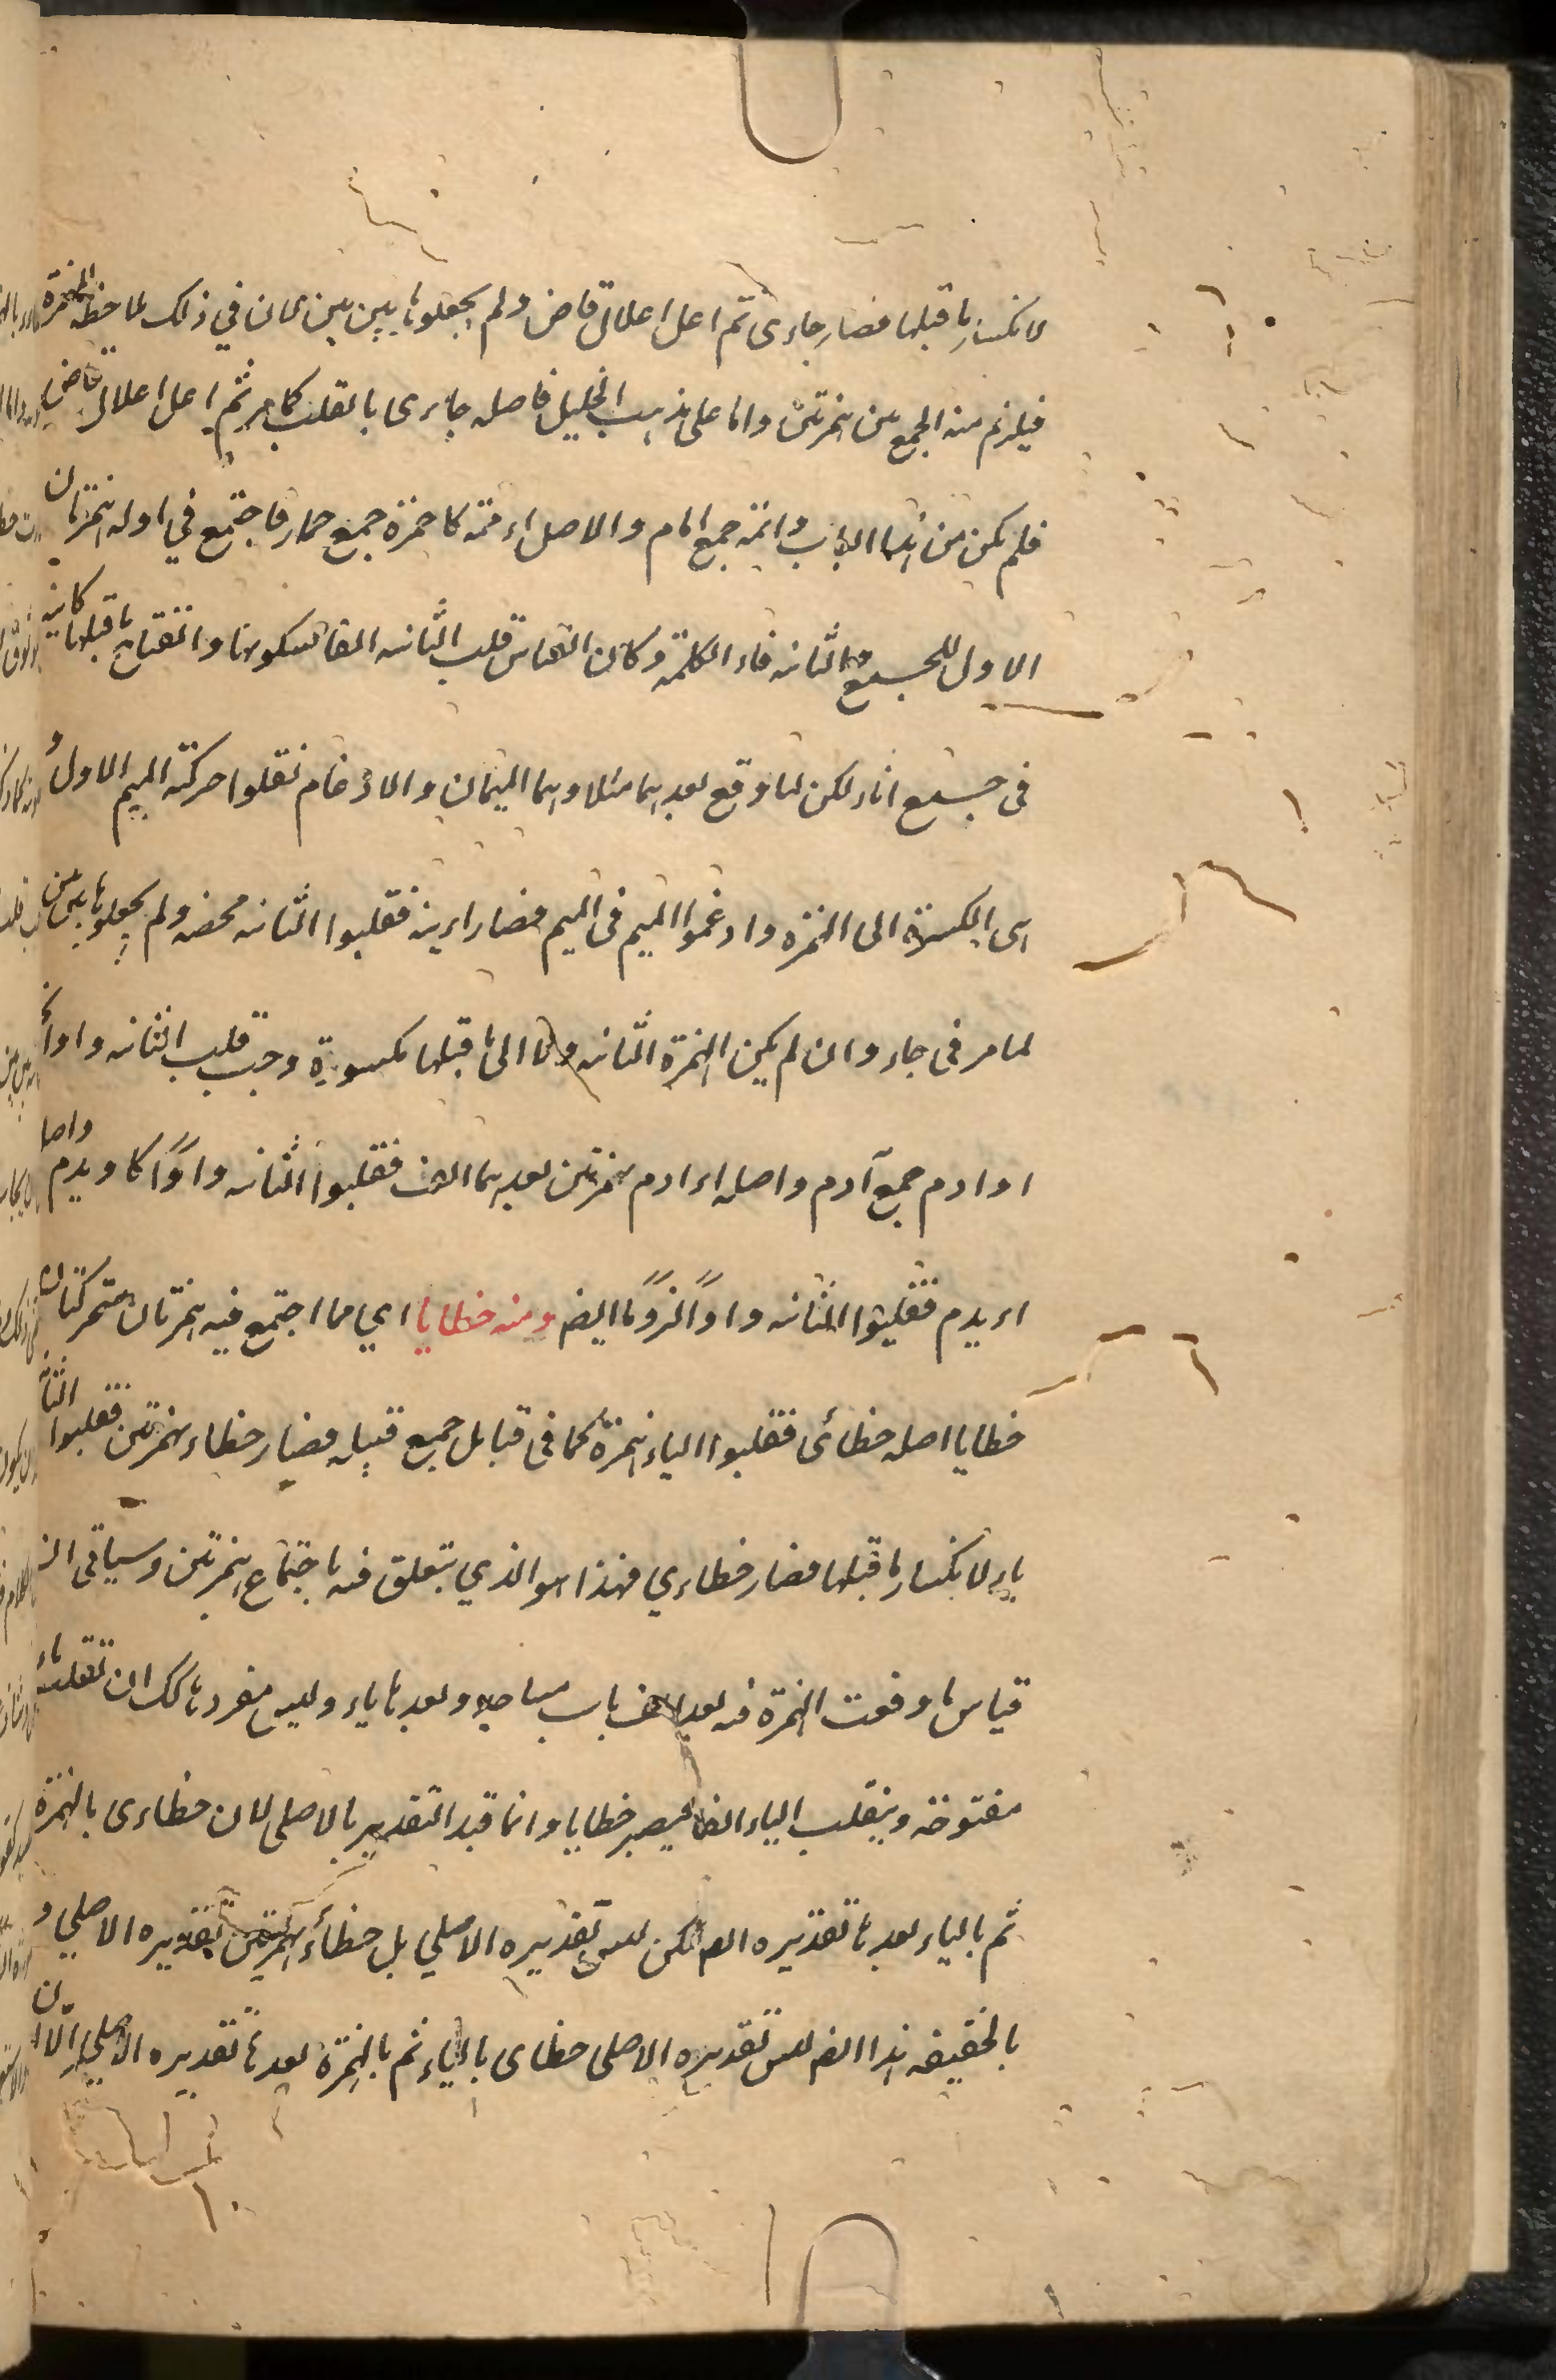 لانكسار ما قبلها فصار جاءى ثم اعل اعلال قاض ولم يجعلوها بين بين لان في ذلك لملاحظة الهمزة
فيلزم منه الجمع بين همزتين واما على مذهب الخليل فاصله جاءى بالقلب كما مر ثم اعل اعلال قاض
فلم يكن من هذا الباب وائمة جمع امام والاصل اءممة كاحمرة جمع حمار فاجتمع في اوله همزتان
الاول للجمع والثانيه فاء الكلمة وكان القياس قلب الثانيه الفا لسكونها وانفتاح ما قبلها كانيه
فى جمع اناء لكن لما وقع بعدهما مثلا وهما الميمان والادغام نقلوا حركة الميم الاولى و
اى الكسرة الى الهمزه وادغموا الميم فى الميم فصار اءيمة فقلبوا الثانيه محضه ولم يجعلوها بين بين
لما مر فى جاء وان لم يكن الهمزة الثانيه ولا الى ما قبلها مكسورة وجب قلب الثانيه واوا نحو
اوادم جمع آدم واصله اءادم بهمزتين بعدهما الف فقلبوا الثانيه واوًا كاويدم واصله
اءيدم فقلبوا الثانيه واوًا لزومًا ايضا ومنه خطايا اي مما اجتمع فيه همزتان متحركتان
خطايا اصله خطائى فقلبوا الياء همزة كما فى قبايل جمع قبيله فصار خطاء بهمزتين فقلبوا الثا
ياء لانكسار ما قبلها فصار خطاءي فهذا هو الذي يتعلق فيه باجتماع همزتين وسياتى ان
قياس ما وقعت الهمزة فيه بعد الف باب مساجد وبعدها ياء وليس مفردها كك ان تقلب ياء
مفتوحة وينقلب الياء الفا فيصير خطايا وانما قيد التقدير بالاصلى لان خطاءى بالهمزة
ثم بالياء بعدها تقديره ايضا لكن ليس تقديره الاصلي بل خطاأء بهمزتين تقديره الاصلي و
بالحقيقه هذا ايضا ليس تقديره الاصلى خطاى بالياء ثم بالهمزة بعدها تقديره الاصلي الا ان